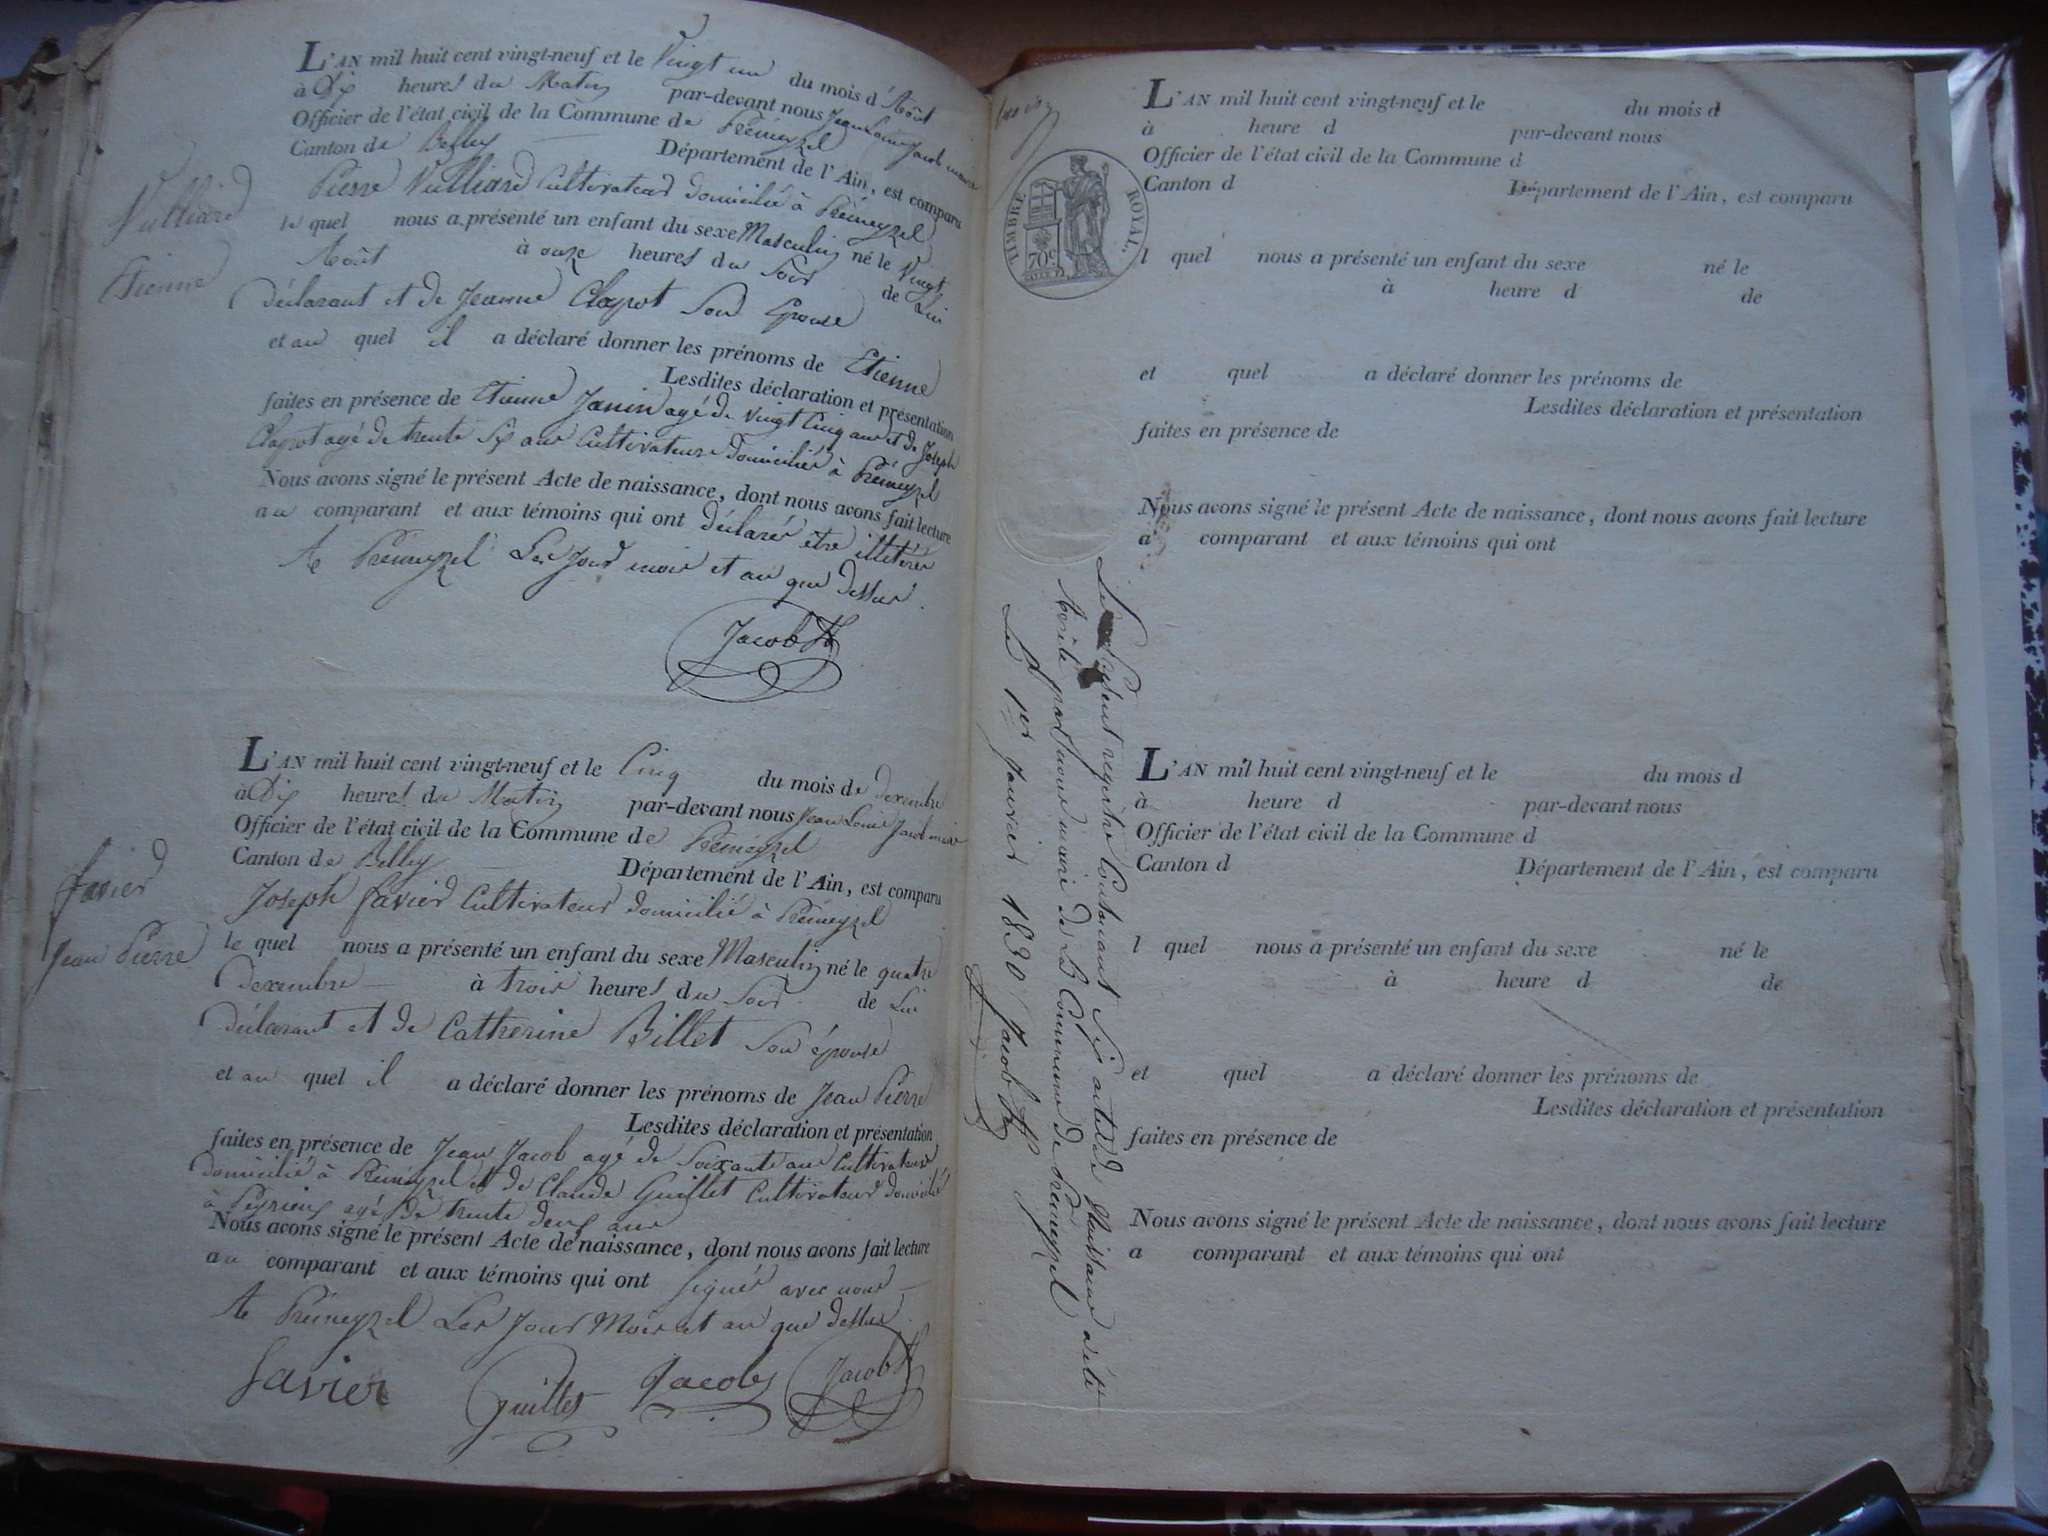 L'AN mil huit cent vingt-neuf et le Vingt un du mois d'Août
à Dix heures du Matin par-devant nous Jean Louis Jacob maire
Officier de l'état civil de la Commune de Prémeyzel
Canton de Belley Département de l'Ain, est comparu
Pierre Vulliard Cultivateur domicilié à Prémeyzel
le quel nous a présenté un enfant du sexe Masculin né le Vingt
Août à onze heures du Soir de Lui
déclarant et de Jeanne Clapot Son Epouse
et au quel il a déclaré donner les prénoms de Etienne
Lesdites déclaration et présentation
faites en présence de Etienne Janin agé de Vingt Cinq ans et de Joseph
Clapot agé de trente Six ans Cultivateurs domiciliés à Prémeyzel
Nous avons signé le présent Acte de naissance, dont nous avons fait lecture
au comparant et aux témoins qui ont déclarés être illitérés
A Prémeyzel Les Jour mois et an que dessus.
Jacob
Vulliard
Etienne
L'AN mil huit cent vingt-neuf et le Cinq du mois de dexembre
à Dix heures du Matin par-devant nous Jean Louis Jacob maire
Officier de l'état civil de la Commune de Prémeyzel
Canton de Belley Département de l'Ain, est comparu
Joseph Savier Cultivateur domicilié à Prémeyzel
le quel nous a présenté un enfant du sexe Masculin né le quatre
Dexembre à trois heures du Soir de Lui
déclarant et de Catherine Billet Son épouse
et au quel il a déclaré donner les prénoms de Jean Pierre
Lesdites déclaration et présentation
faites en présence de Jean Jacob agé de Soixante ans Cultivateur
domicilié à Prémeyzel et de Claude Guillet Cultivateur domicilié
à Peyrieux agé de trente deux ans
Nous avons signé le présent Acte de naissance, dont nous avons fait lecture
au comparant et aux témoins qui ont signés avec nous
A Prémeyzel Les Jour Mois et an que dessus.
Savier Guillet Jacob Jacob
Savier
Jean Pierre
TIMBRE ROYAL.
70 c
L'AN mil huit cent vingt-neuf et le du mois d
à heure d par-devant nous
Officier de l'état civil de la Commune d
Canton d Département de l'Ain, est comparu
l quel nous a présenté un enfant du sexe né le
à heure d de
et quel a déclaré donner les prénoms de
Lesdites déclaration et présentation
faites en présence de
Nous avons signé le présent Acte de naissance, dont nous avons fait lecture
a comparant et aux témoins qui ont
Le présent registre Contenant Six actes de Naissance a été
Arrêté par nous maire de La Commune de Prémeyzel
Le 1er Janvier 1830 Jacob
L'AN mil huit cent vingt-neuf et le du mois d
à heure d par-devant nous
Officier de l'état civil de la Commune d
Canton d Département de l'Ain, est comparu
l quel nous a présenté un enfant du sexe né le
à heure d de
et quel a déclaré donner les prénoms de
Lesdites déclaration et présentation
faites en présence de
Nous avons signé le présent Acte de naissance, dont nous avons fait lecture
a comparant et aux témoins qui ont